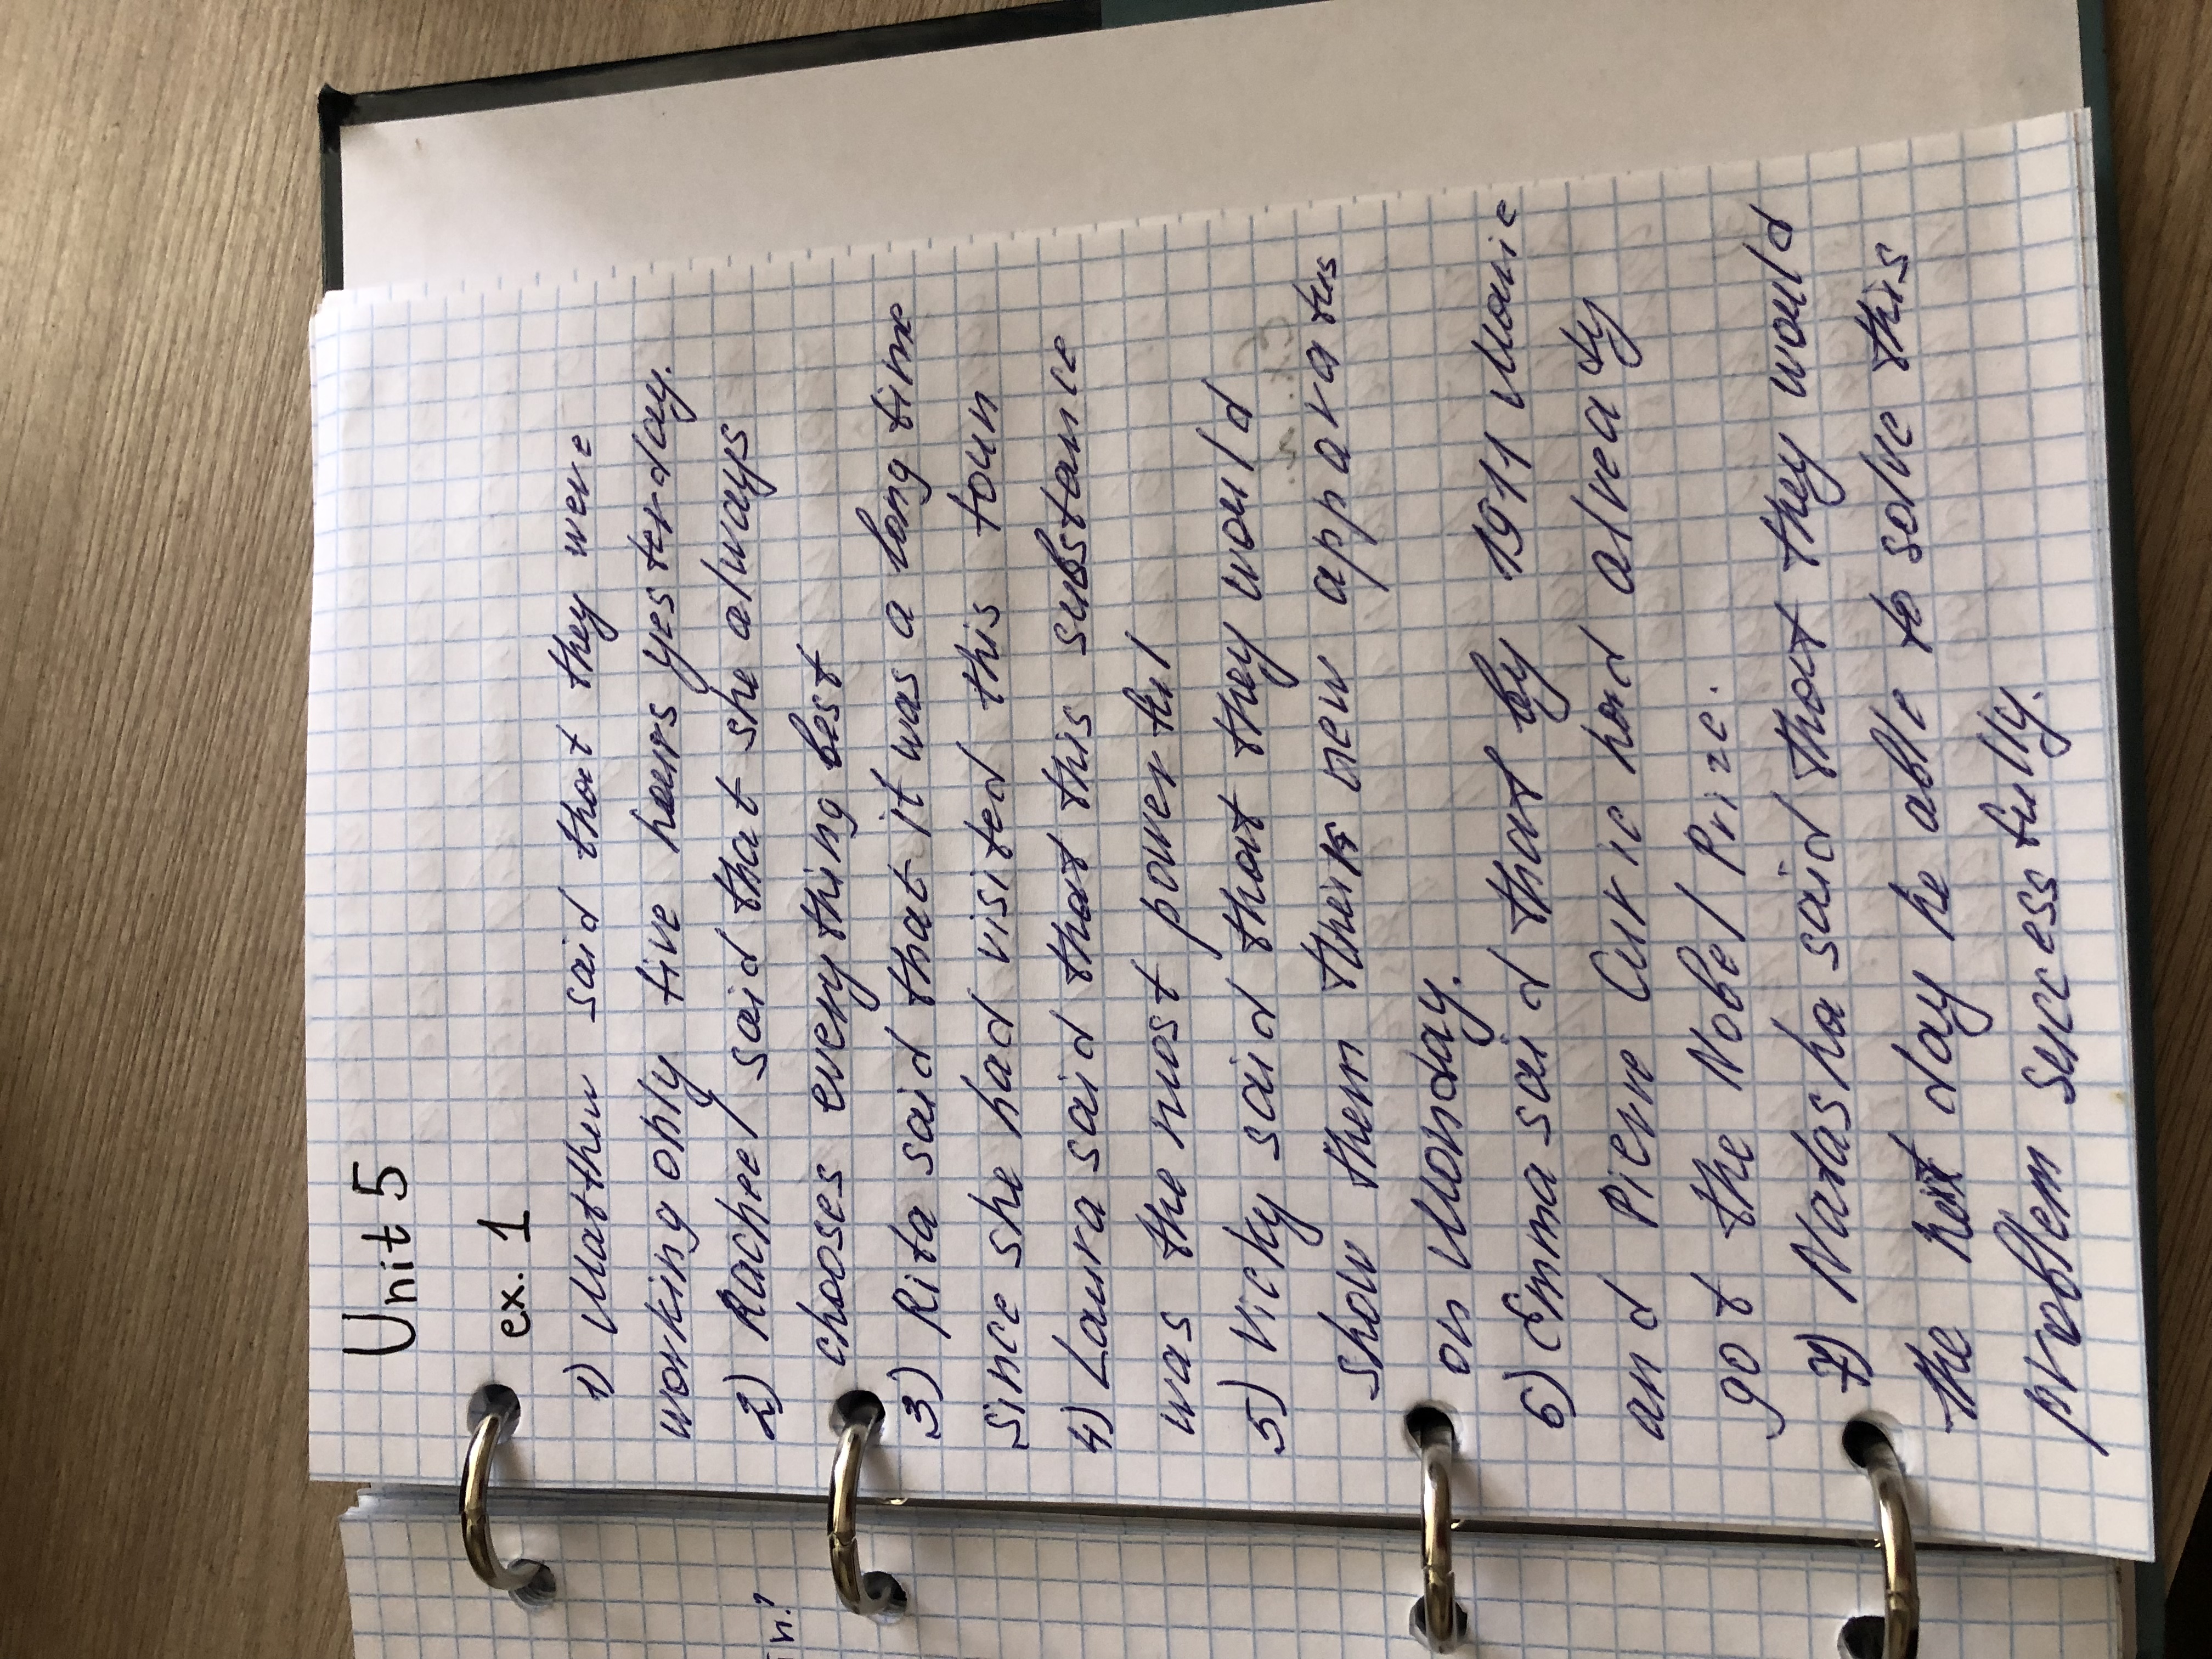 Unit 5
ex. 1
1) Matthew said that they were
working only five hours yesterday.
2) Rachel said that she always
chooses everything best
3) Rita said that it was a long time
since she had visited this town
4) Laura said that this substance
was the most powerful
5) Vicky said that they would
show them their new apparatus
on Monday.
6) Emma said that by 1911 Marie
and Pierre Curie had already
got the Nobel Prize.
7) Natasha said that they would
the next day be able to solve this
problem successfully.
in?